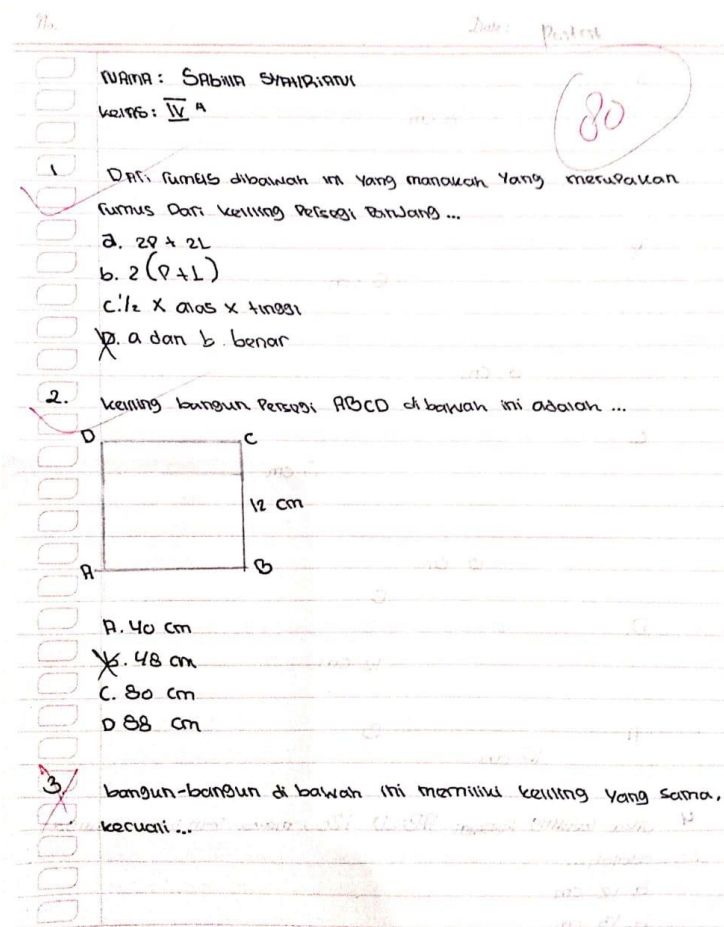 No. Date: Postest
NAMA: SABILLA SYAHRIANI
Kelas: IV A
80
1 DARi rumus dibawah ini yang manakah yang merupakan
rumus Dari keliling Persegi Panjang...
a. 2P + 2L
b. 2 (P+L)
c. 1/2 x alas x tinggi
D. a dan b benar
2. keliling bangun Persegi ABCD di bawah ini adalah ...
D C
12 cm
A B
A. 40 cm
B. 48 cm
C. 80 cm
D 88 cm
3 bangun-bangun di bawah ini memiliki keliling yang sama,
kecuali ...